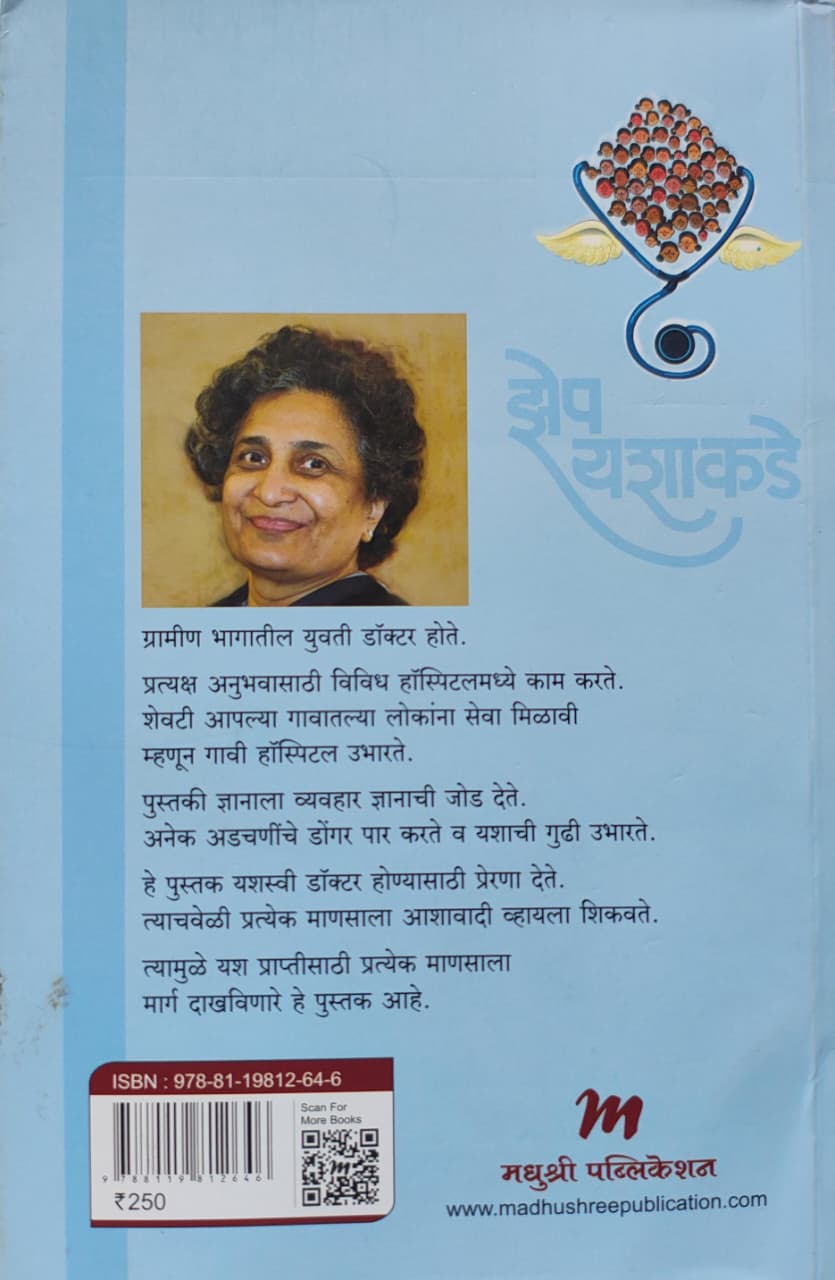 झेप
यशाकडे
ग्रामीण भागातील युवती डॉक्टर होते.
प्रत्यक्ष अनुभवासाठी विविध हॉस्पिटलमध्ये काम करते.
शेवटी आपल्या गावातल्या लोकांना सेवा मिळावी
म्हणून गावी हॉस्पिटल उभारते.
पुस्तकी ज्ञानाला व्यवहार ज्ञानाची जोड देते.
अनेक अडचणींचे डोंगर पार करते व यशाची गुढी उभारते.
हे पुस्तक यशस्वी डॉक्टर होण्यासाठी प्रेरणा देते.
त्याचवेळी प्रत्येक माणसाला आशावादी व्हायला शिकवते.
त्यामुळे यश प्राप्तीसाठी प्रत्येक माणसाला
मार्ग दाखविणारे हे पुस्तक आहे.
ISBN : 978-81-19812-64-6
Scan For
More Books
9 788119 812646
₹250
m
मधुश्री पब्लिकेशन
www.madhushreepublication.com